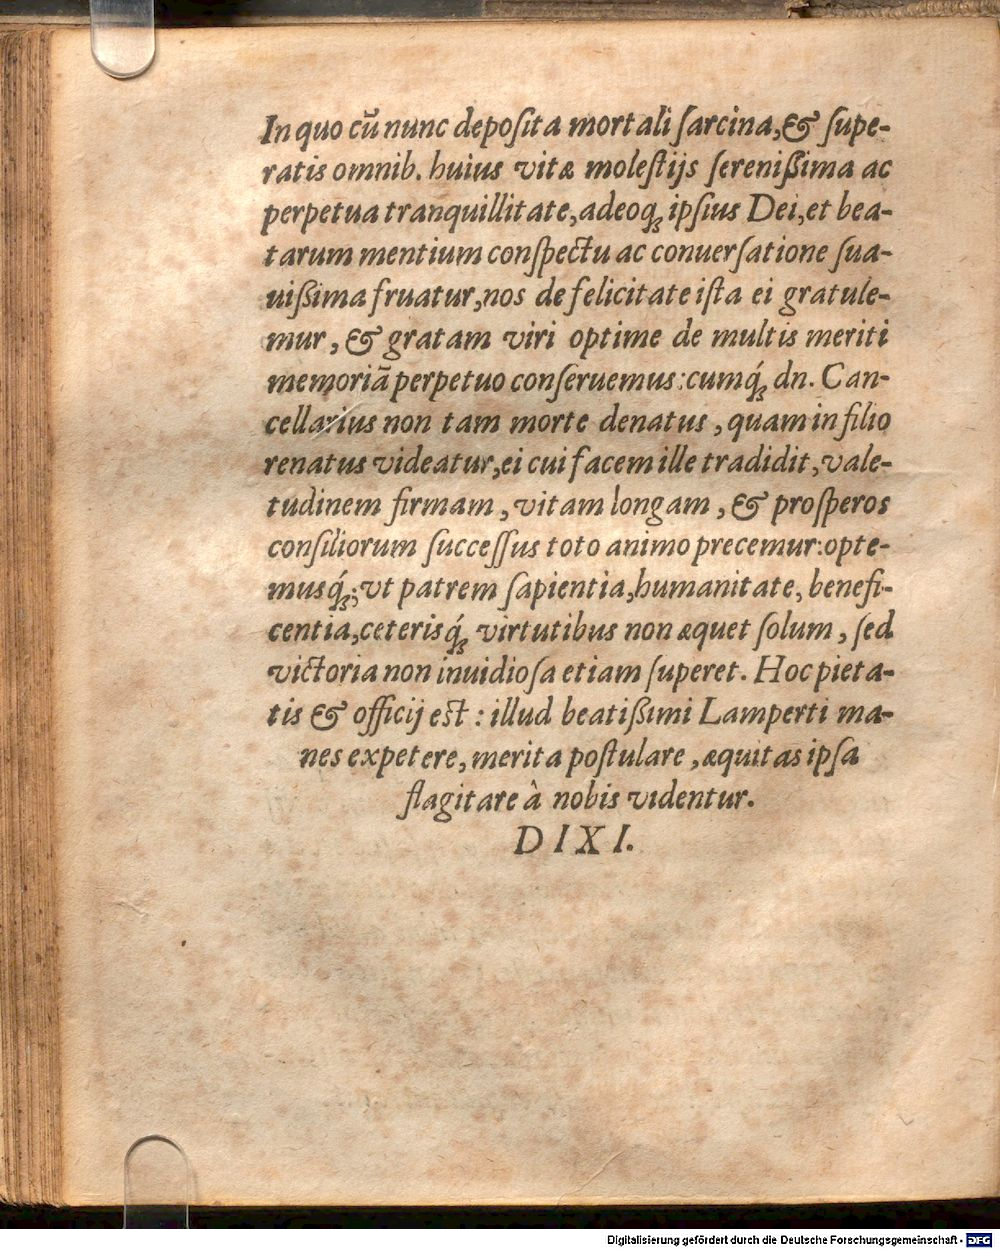 In quo cũ nunc deposita mortali sarcina, & supe-
ratis omnib. huius vitæ molestijs serenißima ac
perpetua tranquillitate, adeoq; ipsius Dei, et bea-
tarum mentium conspectu ac conuersatione sua-
uißima fruatur, nos de felicitate ista ei gratule-
mur, & gratam viri optime de multis meriti
memoriã perpetuo conseruemus: cumq́; dn. Can-
cellarius non tam morte denatus, quam in filio
renatus videatur, ei cui facem ille tradidit, vale-
tudinem firmam, vitam longam, & prosperos
consiliorum successus toto animo precemur: opte-
musq́;; vt patrem sapientia, humanitate, benefi-
centia, ceterisq́; virtutibus non æquet solum, sed
victoria non inuidiosa etiam superet. Hoc pieta-
tis & officij est: illud beatißimi Lamperti ma-
nes expetere, merita postulare, æquitas ipsa
flagitare à nobis videntur.
DIXI.
Digitalisierung gefördert durch die Deutsche Forschungsgemeinschaft - DFG